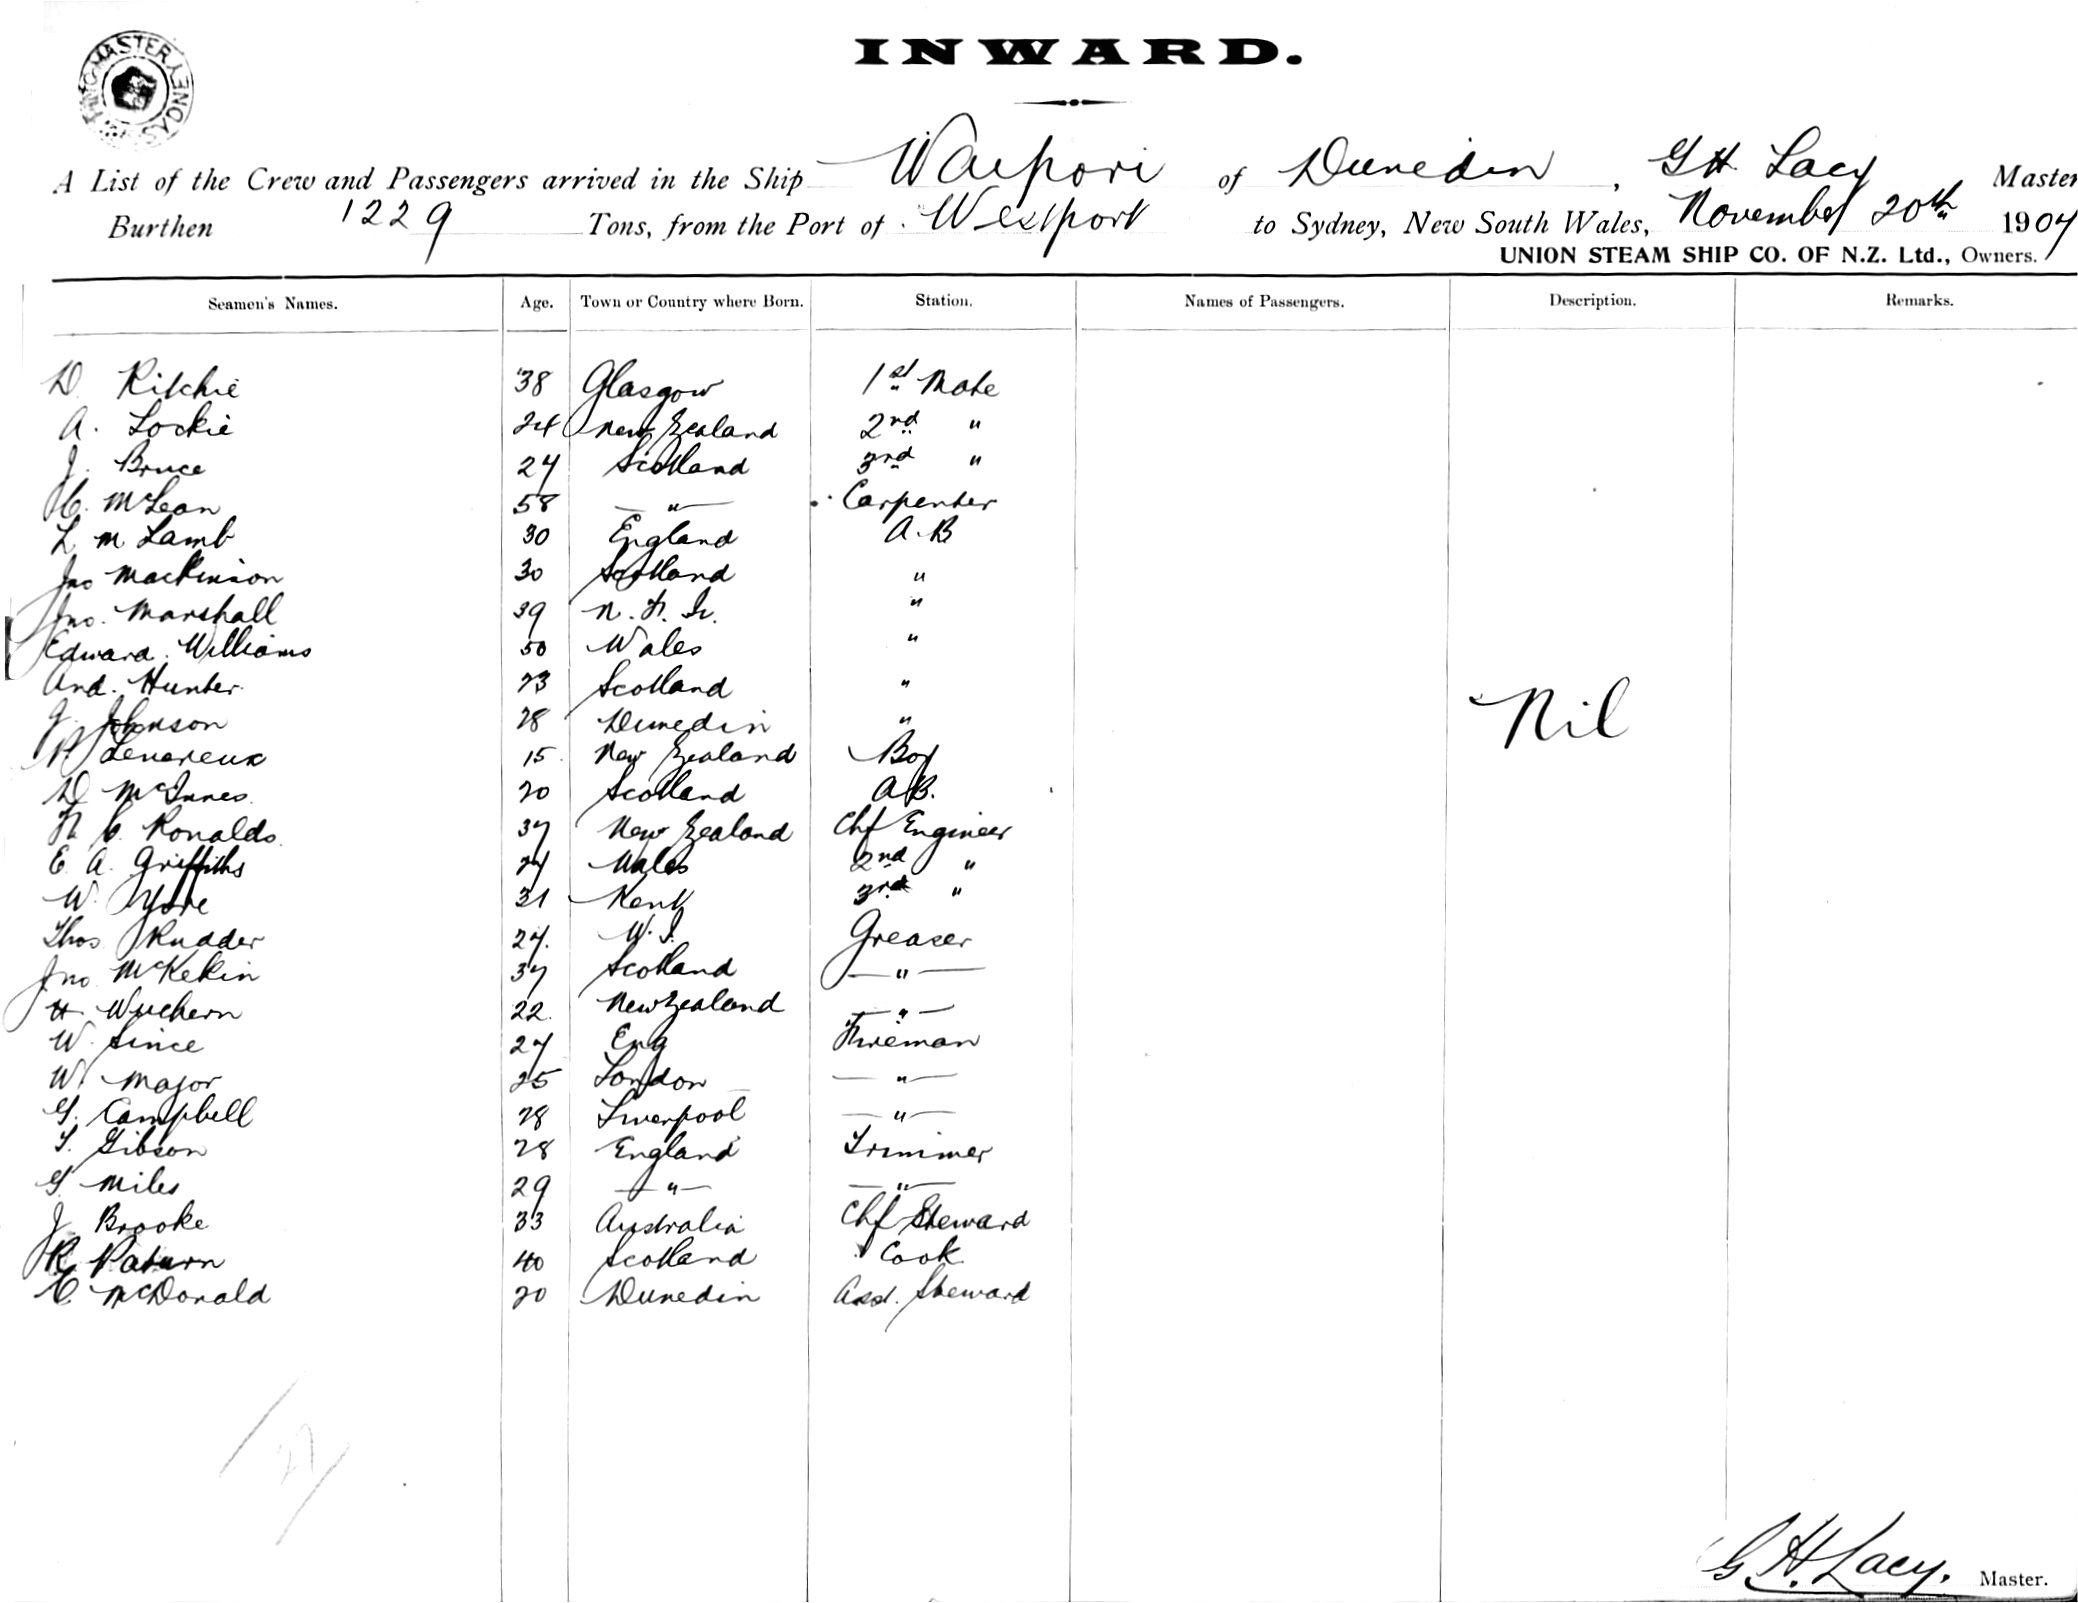 SHIPPING MASTER SYDNEY
INWARD.
A List of the Crew and Passengers arrived in the Ship Waipori of Dunedin, G H Lacy Master
Burthen 1229 Tons, from the Port of Westport to Sydney, New South Wales, November 20th 1907
UNION STEAM SHIP CO. OF N.Z. Ltd., Owners.
Seamen's Names. Age. Town or Country where Born. Station. Names of Passengers. Description. Remarks.
D. Ritchie 38 Glasgow 1st Mate
A. Lockie 24 New Zealand 2nd "
J. Bruce 27 Scotland 3rd "
H. McLean 58 " Carpenter
L M Lamb 30 England A.B
Jno MacKinnon 30 Scotland "
Jno. Marshall 39 "
Edward Williams 50 Wales "
And. Hunter 23 Scotland "
J. Johnson 28 Dunedin "
Nil
P. Levereux 15 New Zealand Boy
D McInnes 20 Scotland AB.
F. C. Ronalds 37 New Zealand Chf Engineer
E. A. Griffiths 27 Wales 2nd "
W. Yore 31 Kent 3rd "
Thos Rudder 27. W.I. Greaser
Jno McKekin 37 Scotland "
H Wuchern 22. New Zealand "
W. Since 27 Eng Fireman
W. Major 25 London "
G. Campbell 28 Liverpool "
T. Gibson 28 England Trimmer
G Miles 29 " "
J Brooke 33 Australia Chf Steward
R. Paturn 40 Scotland Cook
C. McDonald 20 Dunedin Asst. Steward
27
G. H. Lacy. Master.